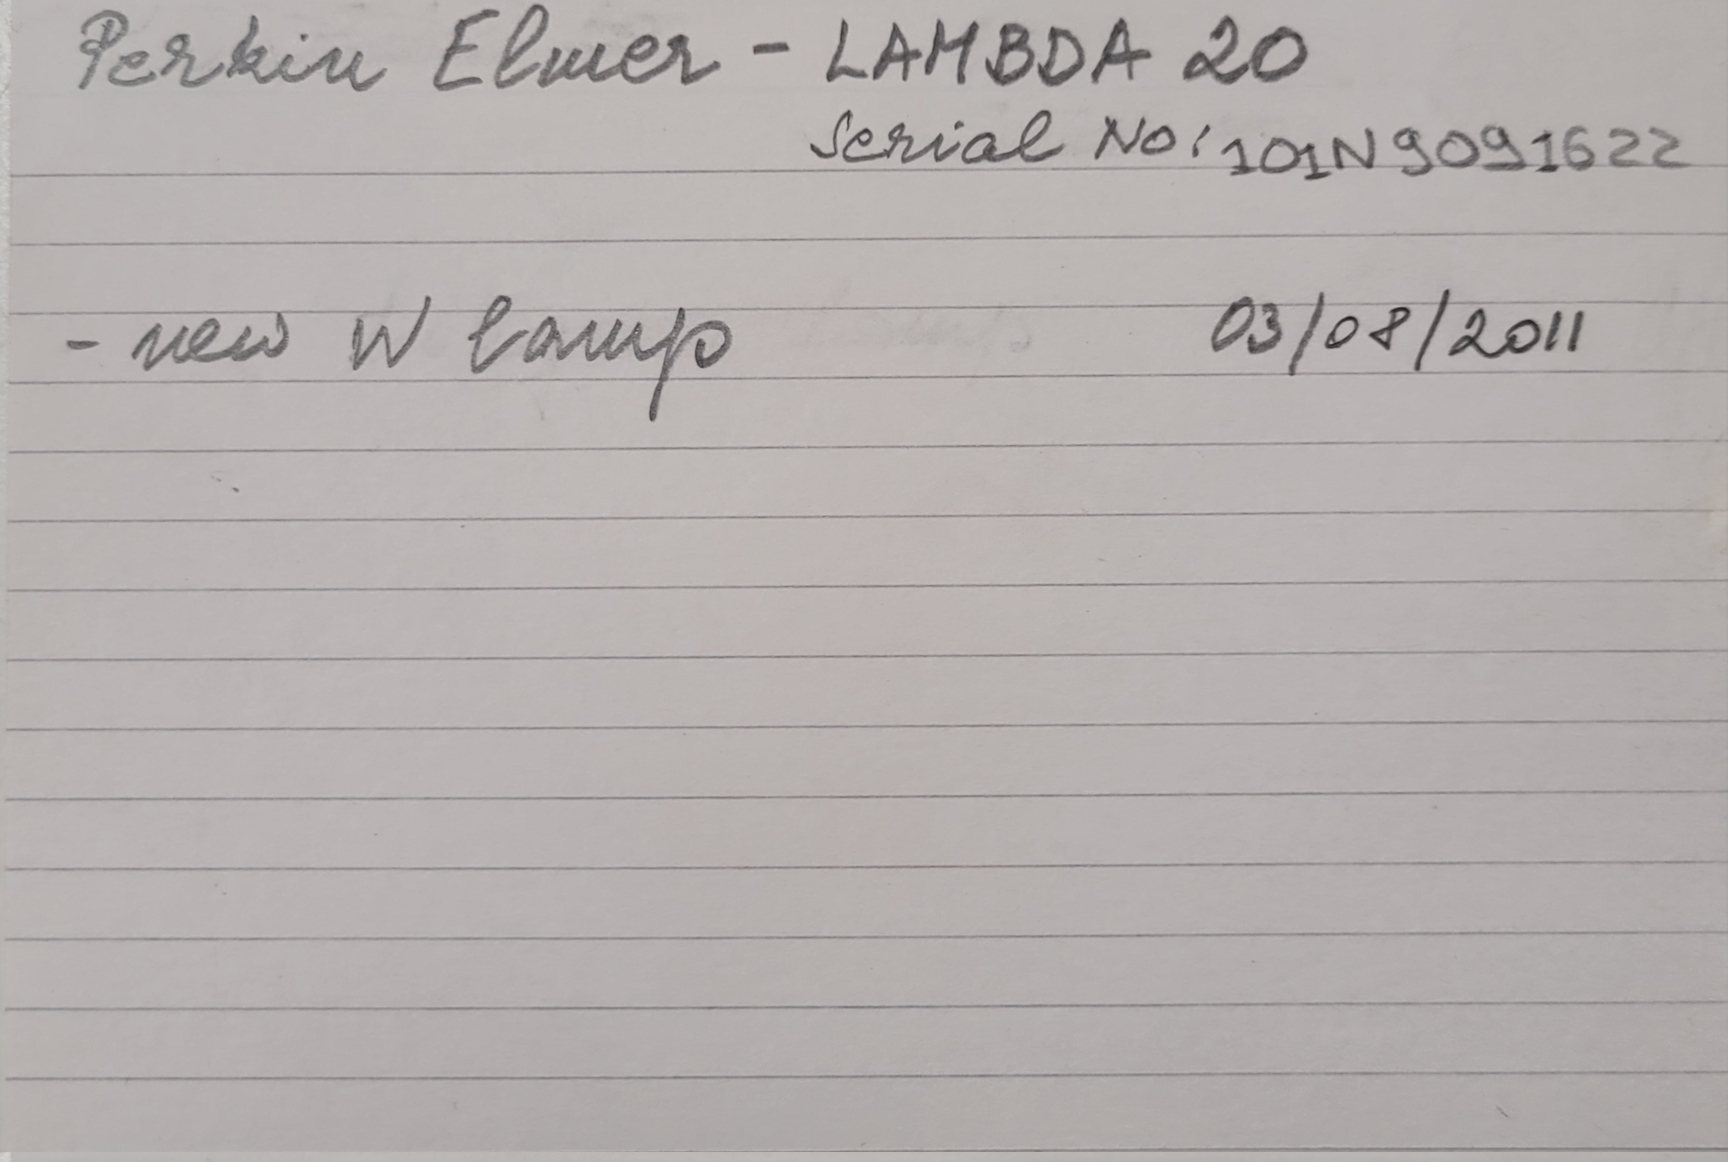 Perkin Elmer - LAMBDA 20
Serial No: 101N9091622
- new W lamp 03/08/2011